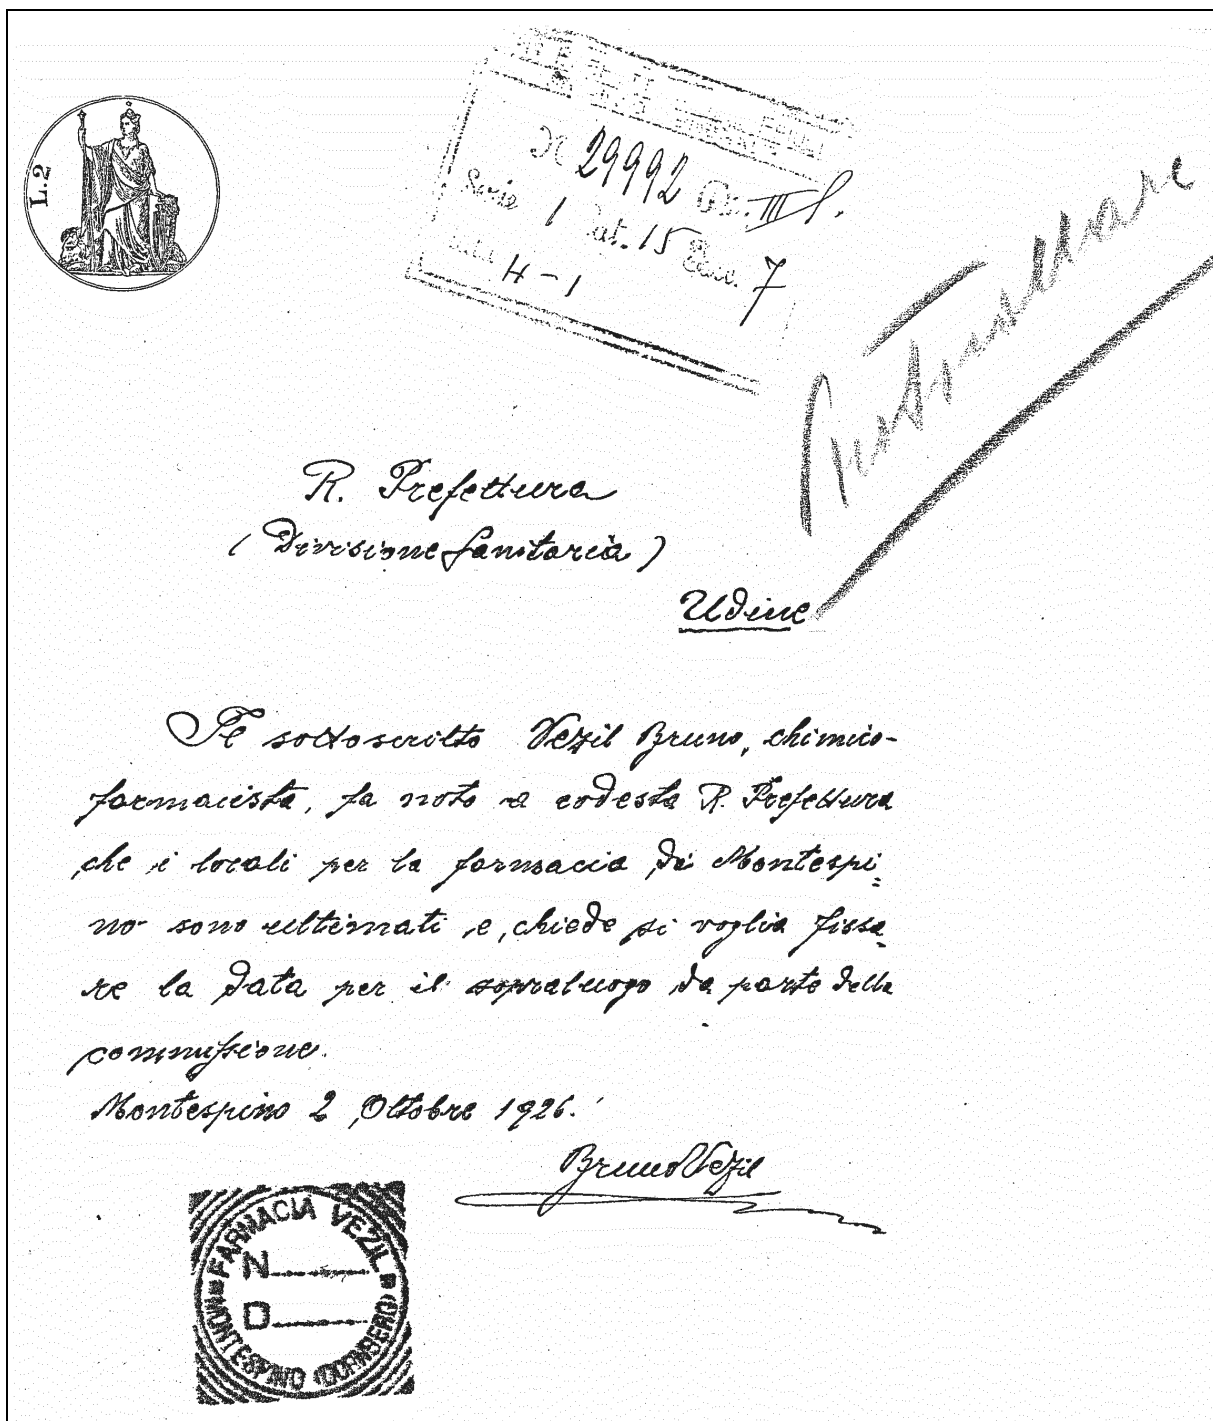 L.2
N 29992 Div. III S.
Serie 1 Cat. 15 Clas. 7
4-1
Protocollare
R. Prefettura
(Divisione Sanitaria)
Udine
Il sottoscritto Vezil Bruno, chimico-
farmacista, fa noto a codesta R. Prefettura
che i locali per la farmacia di Montespi=
no sono ultimati e chiede si voglia fissa=
re la data per il sopraluogo da parte della
commissione.
Montespino 2 Ottobre 1926.
Bruno Vezil
FARMACIA VEZIL
N
D
MONTESPINO (DORNBERG)